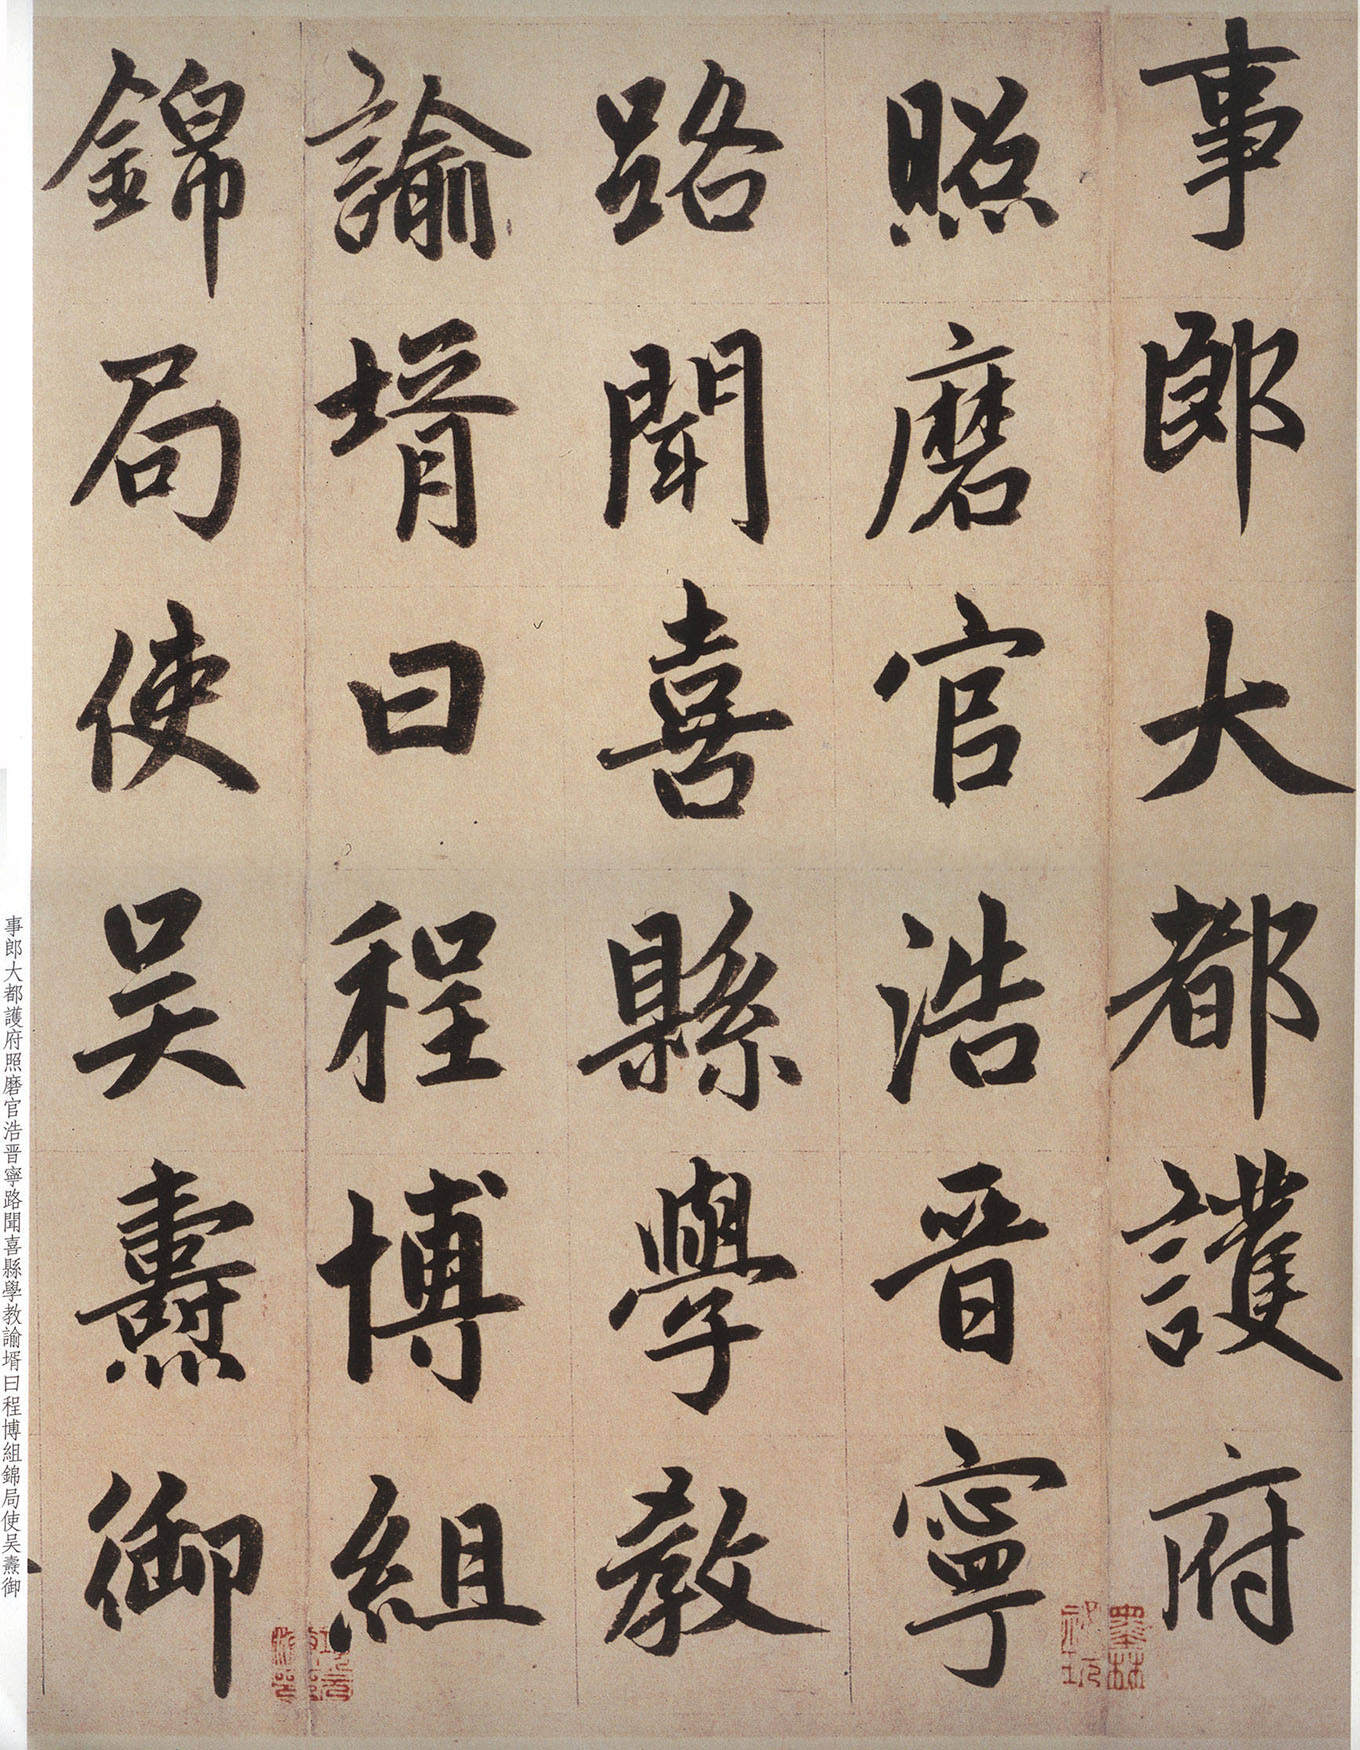 事郎大都護府
照磨官浩晉寧
路聞喜縣學教
諭壻曰程博組
錦局使吴燾御
事郎大都護府照磨官浩晉寧路聞喜縣學教諭壻曰程博組錦局使吴燾御